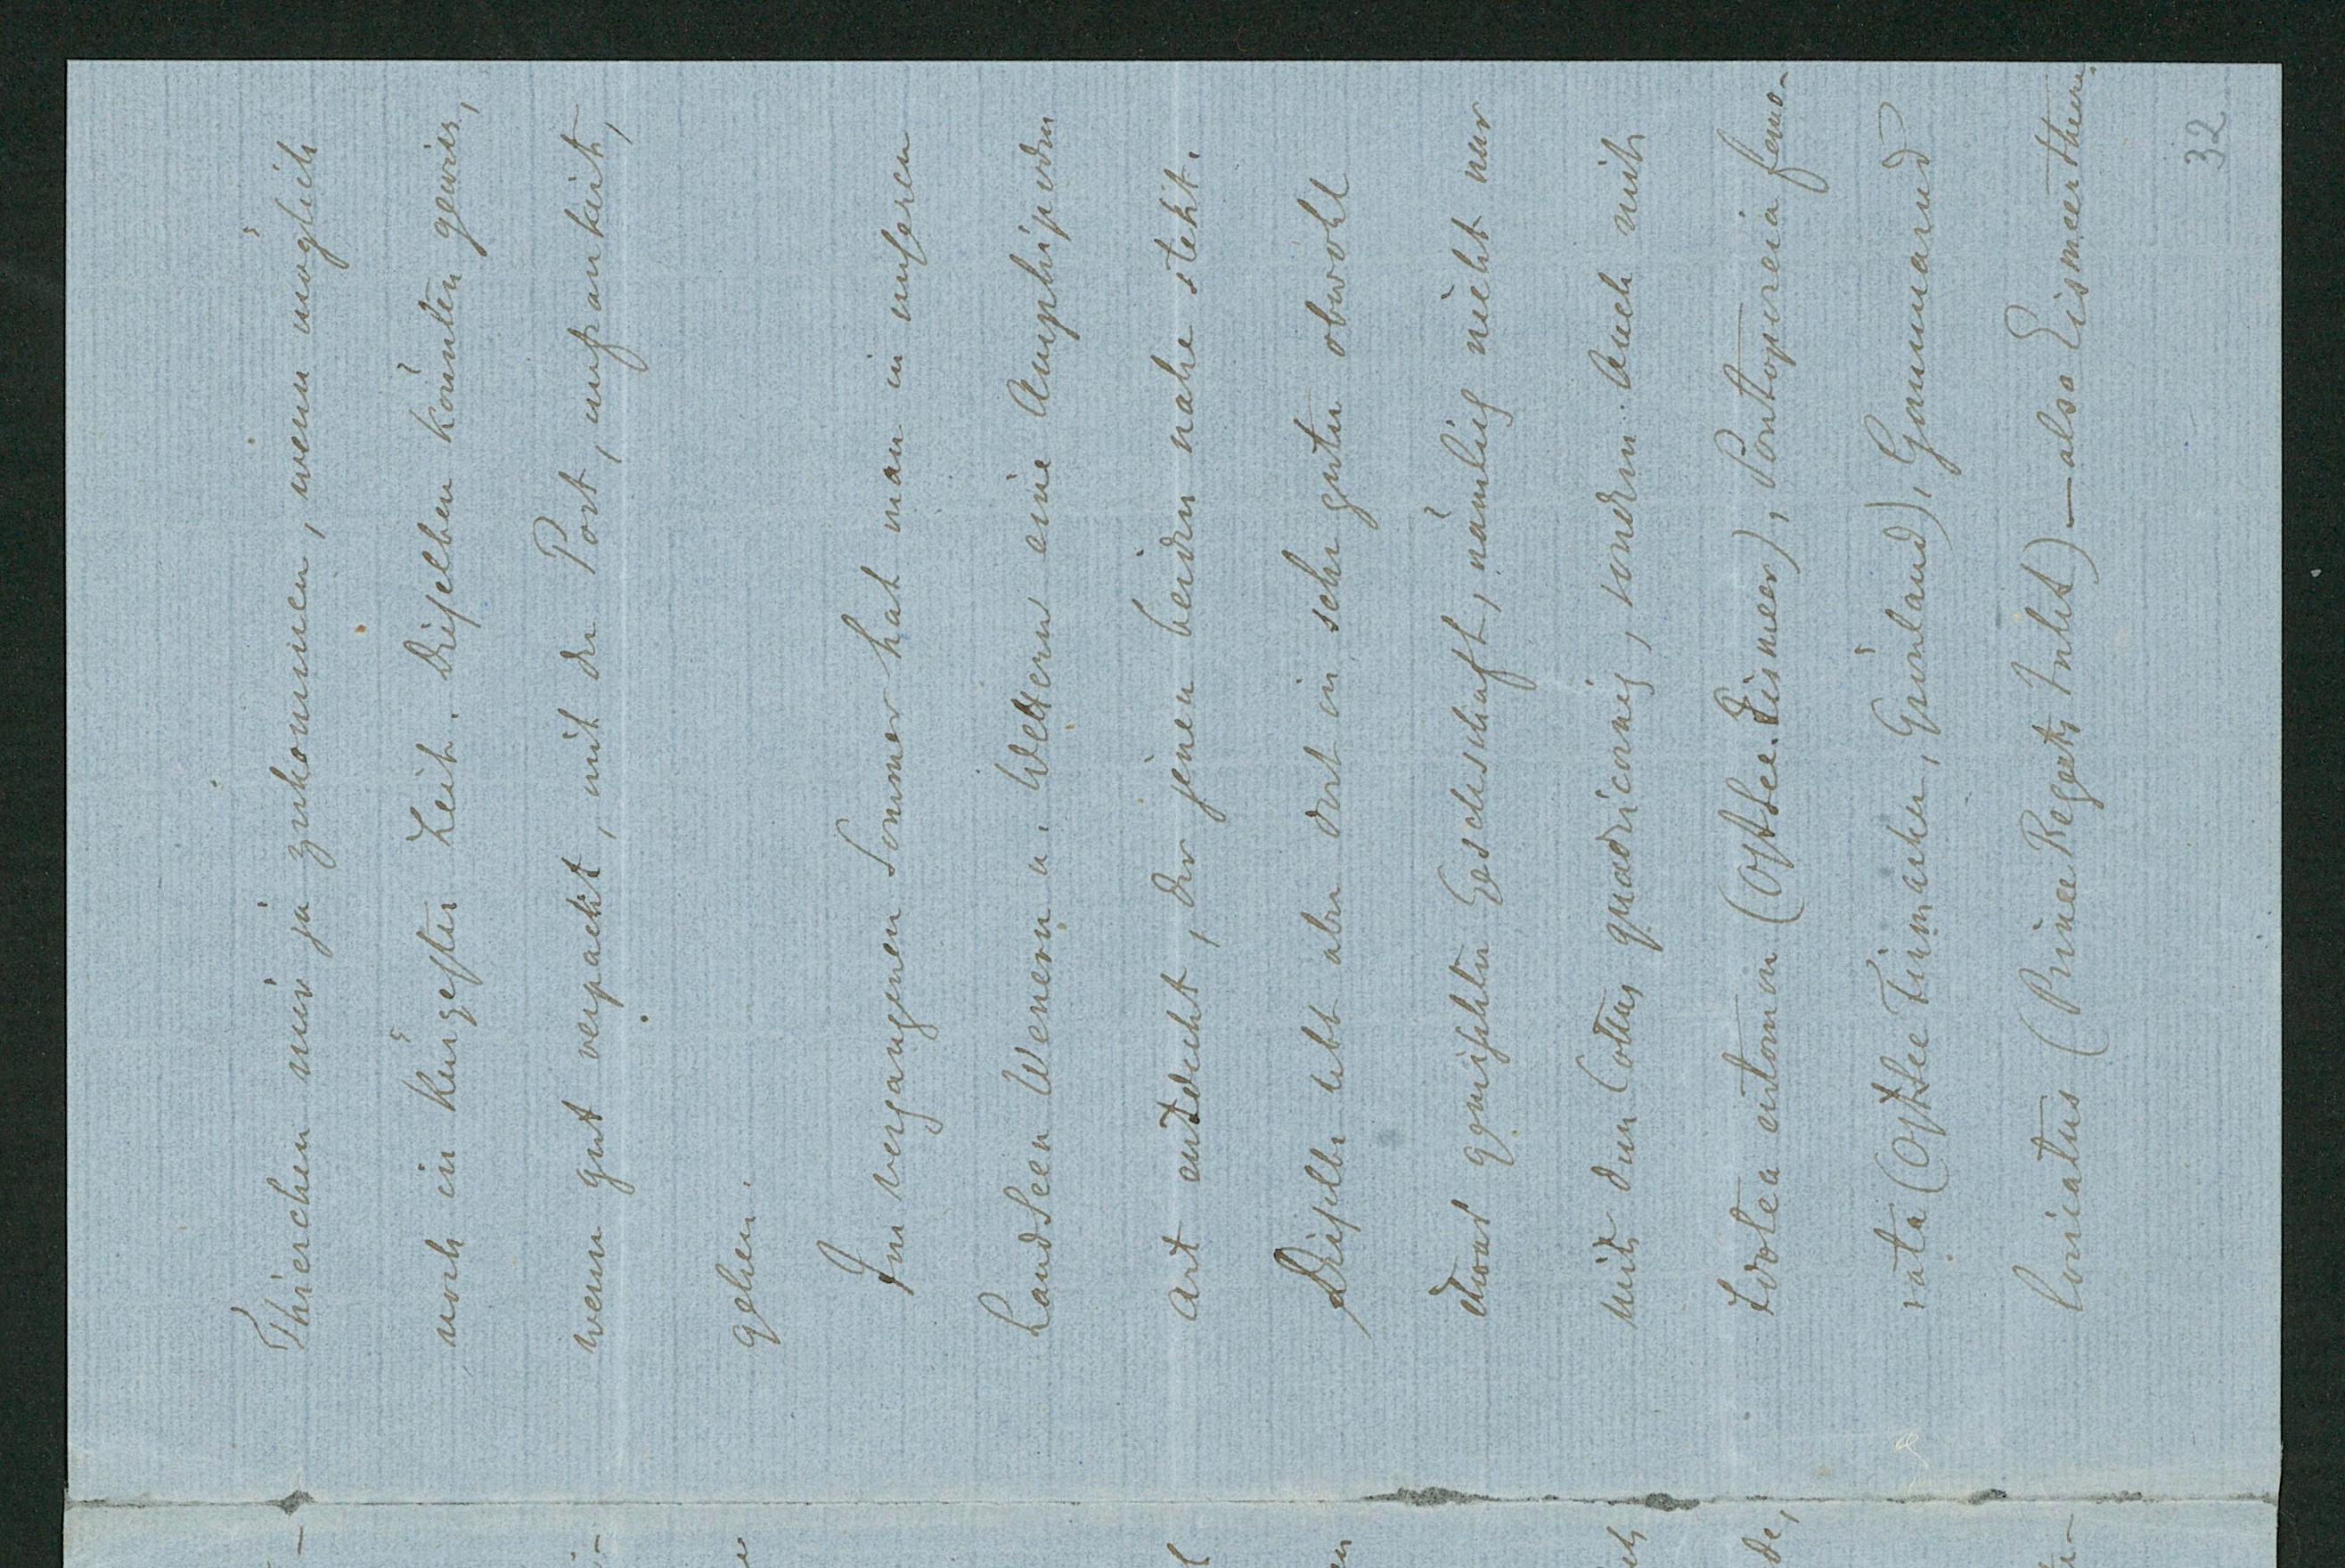 Thierchen mir ja zukommen, wenn möglich
noch in kürzester Zeit. Dieselben könnten gewiss,
wenn gut verpackt, mit der Post, unfrankirt,
gehen.
Im vergangenen Sommer hat man in unseren
Landseen Wenern u. Wettern eine Amphipoden
Art entdeckt, der jenen beiden nahe steht.
Dieselbe lebt aber dort in sehr guter obwohl
etwas gemischter Gesellschaft, nämlich nicht nur
mit dem Cottus quadricornis, sondern auch mit
Idotea entomon (Ostsee. Eismeer), Pontoporeia femo-
rata (Ostsee Finmarken, Grönland), Gammarus
loricatus (Prince Regents Inlet) — also Eismeerthieren.
32